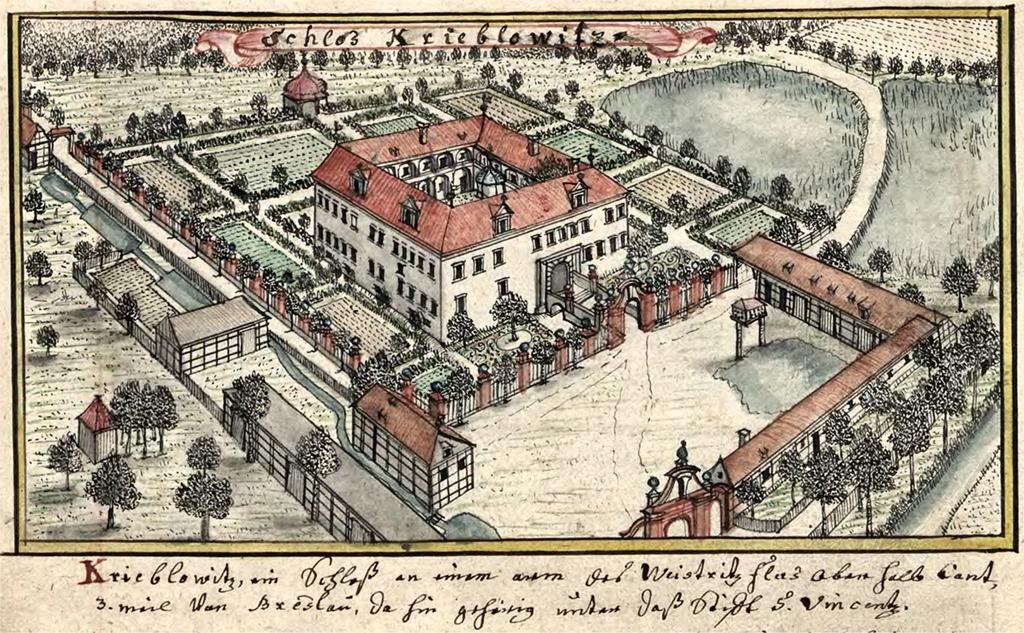 Schloß Krieblowitz
Krieblowitz, ein Schloß an einem arm des Weistritz flus oben halb Cant,
3. meil Von Breslau, da hin gehörig unter daß Stift S. Vincentz.